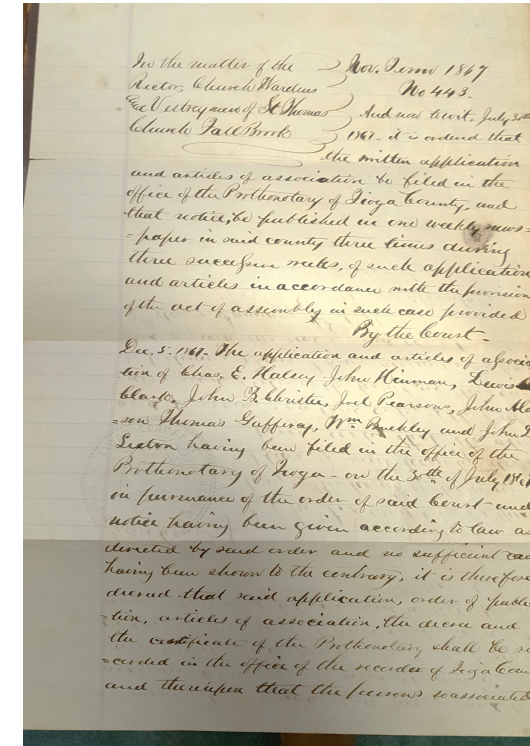 In the matter of the
Rector, Church Wardens
and Vestrymen of St Thomas
Church Fall Brook
Nov. Term 1867
No 443.
And now to wit, July 30th
1867. it is ordered that
the written application
and articles of association be filed in the
office of the Prothonotary of Tioga County, and
that notice, be published in one weekly news=
=paper in said county three times during
three successive weeks, of such application
and articles in accordance with the provision
of the act of assembly in such case provided
By the Court -
Dec. 5. 1867. The application and articles of associa
tion of Chas. E. Halsey John Hinman, Lewis
Clark, John B. Christie, Joel Pearsons, John Al
=son Thomas Wm Buckley and John L
having been filed in the office of the
Prothonotary of Tioga - on the 30th of July 186
in pursuance of the order of said Court - and
notice having been given according to law a
directed by said order and no sufficient cau
having been shown to the contrary, it is therefore
dreed that said application, order of publi
=tion, articles of association, the decree and
the certificate of the Prothonotary shall be re
=corded in the office of the recorder of Tioga Coun
and thereupon that the persons so associated